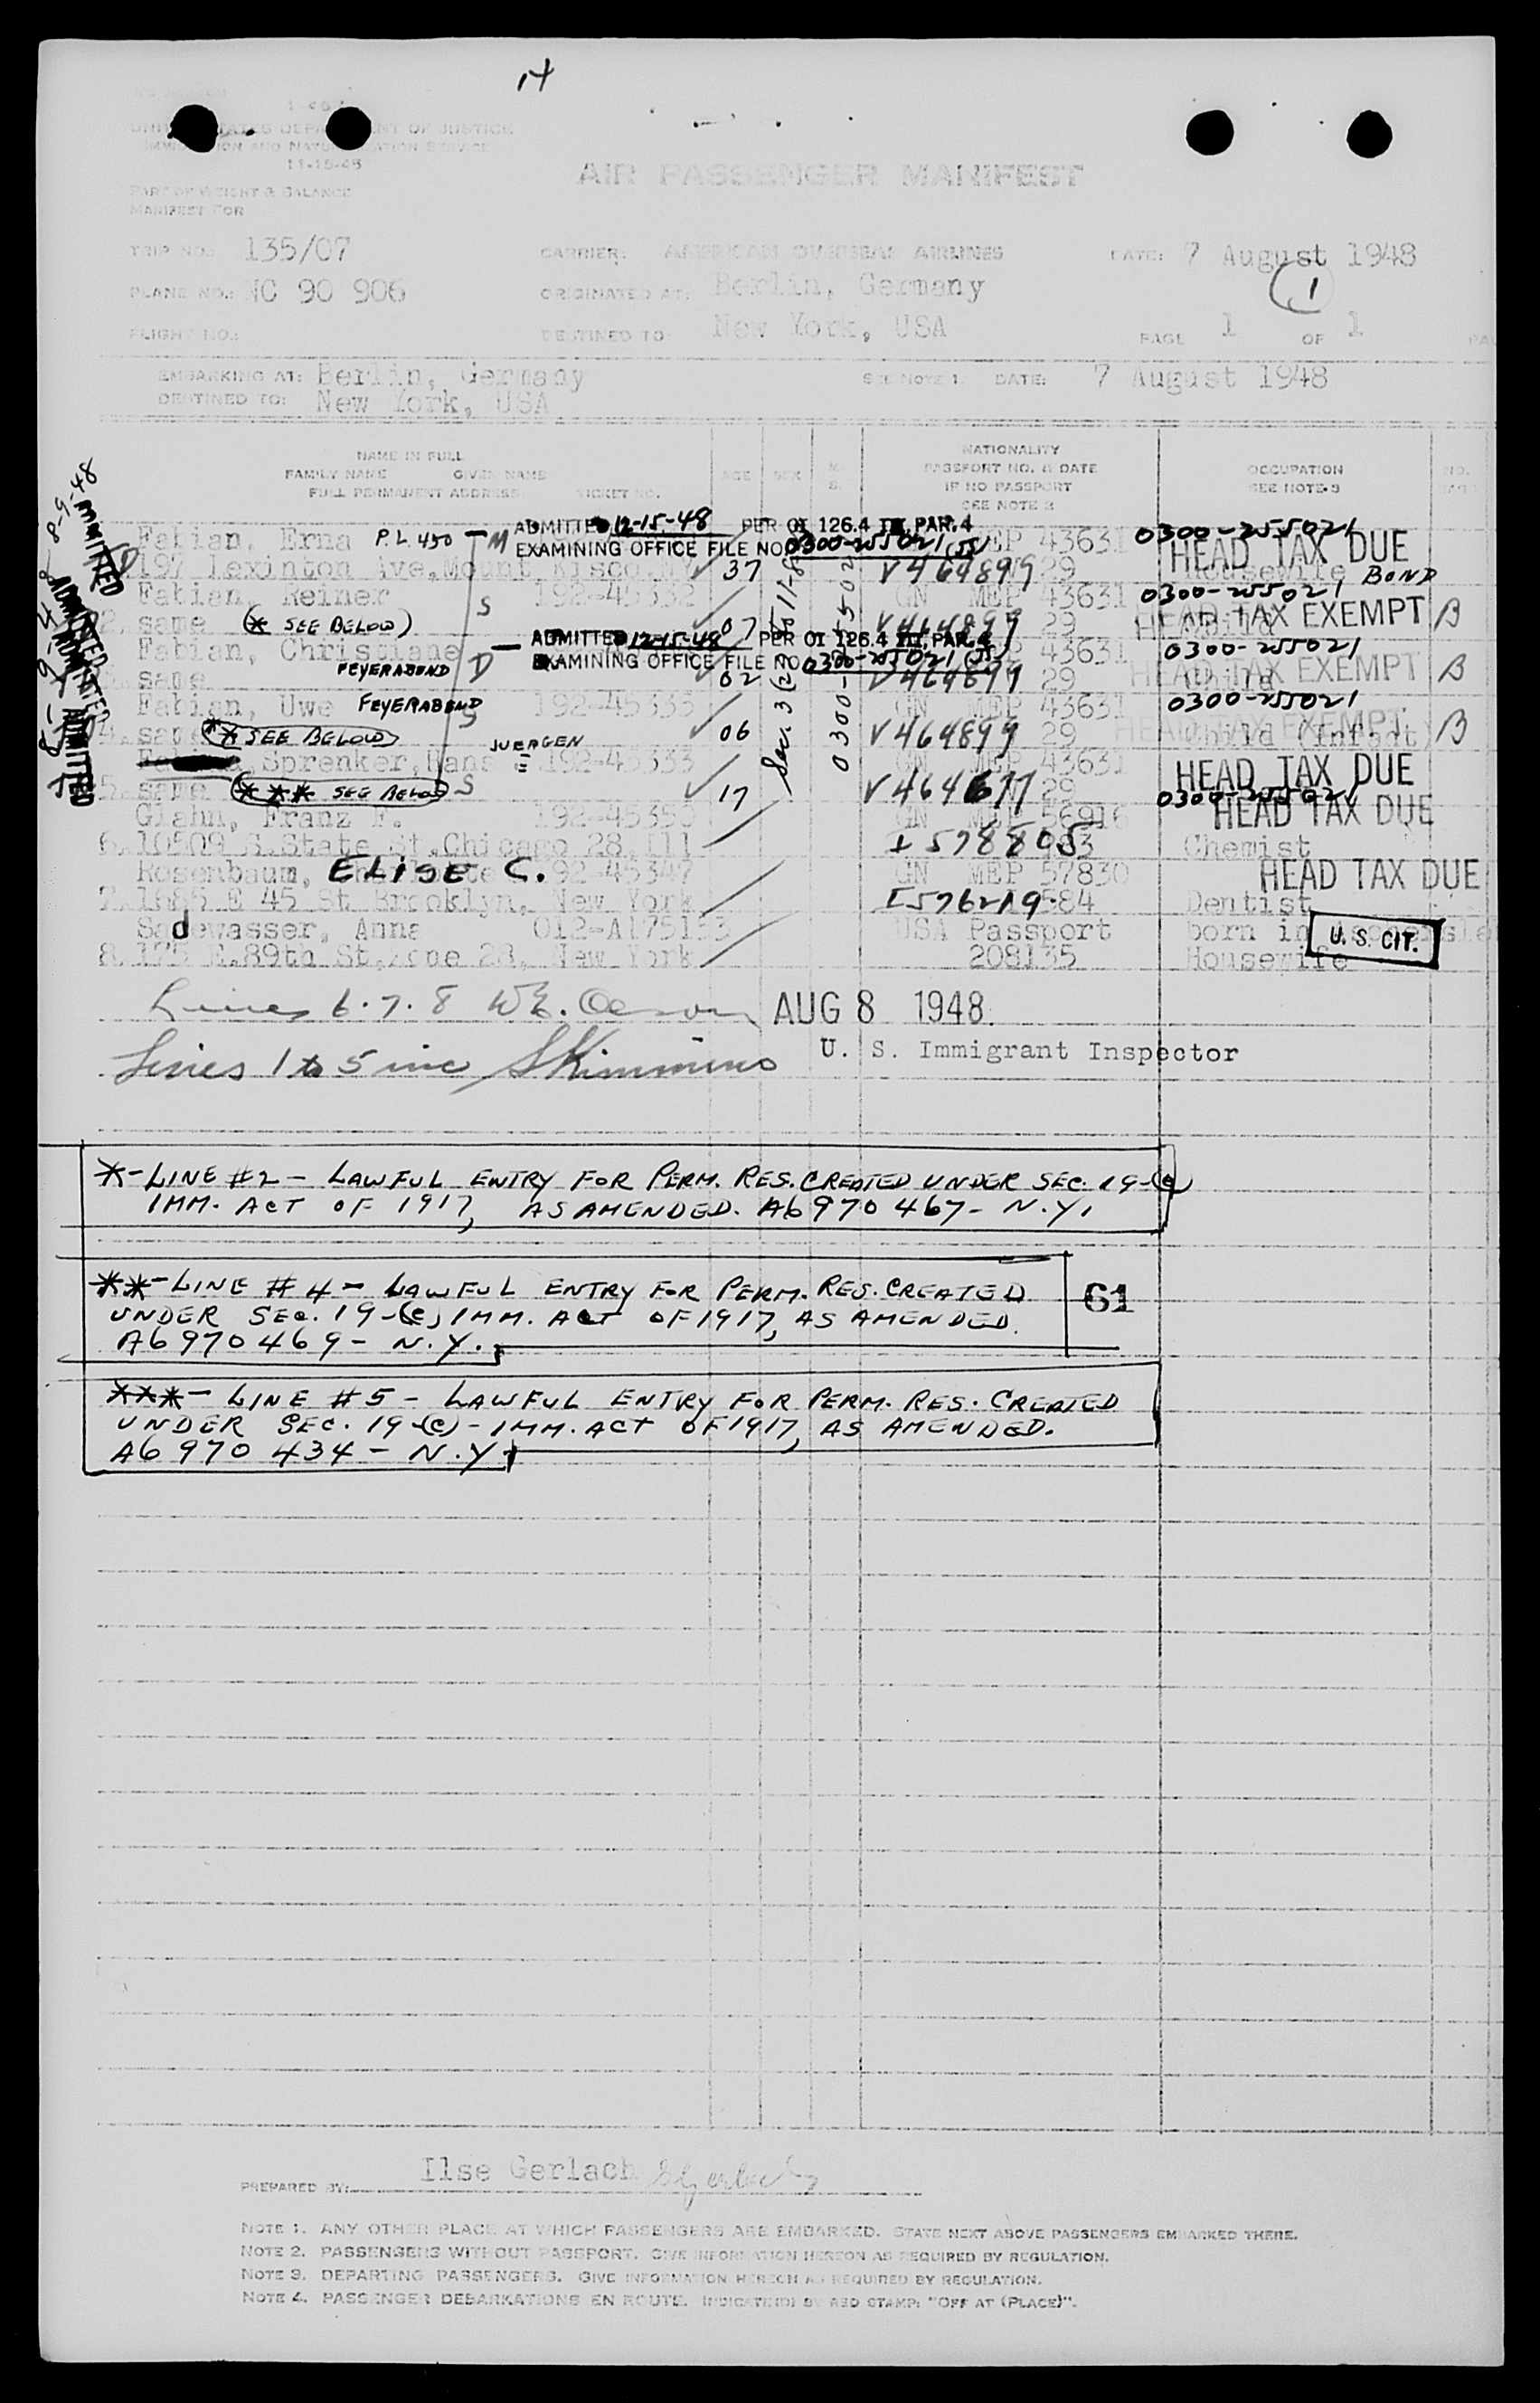 14
UNITED STATES DEPARTMENT OF JUSTICE
IMMIGRATION AND NATURALIZATION SERVICE
11-15-45
PART OF WEIGHT & BALANCE
MANIFEST FOR
AIR PASSENGER MANIFEST
TRIP NO.: 135/07 CARRIER: AMERICAN OVERSEAS AIRLINES DATE: 7 August 1948
PLANE NO.: NC 90 906 ORIGINATED AT: Berlin, Germany 1
FLIGHT NO.: DESTINED TO: New York, USA PAGE 1 OF 1
EMBARKING AT: Berlin, Germany SEE NOTE 1. DATE: 7 August 1948
DESTINED TO: New York, USA
NAME IN FULL NATIONALITY
FAMILY NAME GIVEN NAME AGE SEX M. PASSPORT NO. & DATE OCCUPATION NO.
FULL PERMANENT ADDRESS TICKET NO. S. IF NO PASSPORT SEE NOTE 3
SEE NOTE 2
8-9-48
ADMITTED
ADMITTED
Fabian, Erna P.L. 450 M ADMITTED 12-15-48 PER OI 126.4 III, PAR. 4 MEP 43631 0300-255021
EXAMINING OFFICE FILE NO 0300-255021 HEAD TAX DUE
197 Lexinton Ave, Mount Kisco, NY 37 V464899 29 Housewife BOND
Fabian, Reiner S 192-45332 GN MEP 43631 0300-255021
2. same (* SEE BELOW) 07 V464899 29 Child HEAD TAX EXEMPT B
Fabian, Christiane ADMITTED 12-15-48 PER OI 126.4 III, PAR. 4 43631 0300-255021
FEYERABEND D EXAMINING OFFICE FILE NO 0300-255021
same 02 V464899 29 Child HEAD TAX EXEMPT B
Fabian, Uwe FEYERABEND S 192-45335 GN MEP 43631 0300-255021
4. same (** SEE BELOW) 06 V464899 29 Child (Infant) HEAD TAX EXEMPT B
Sprenker, Hans JUERGEN 192-45333 GN MEP 43631 HEAD TAX DUE
5. same (*** SEE BELOW) S 17 V464677 29 0300-255021
Glahn, Franz F. 192-45350 GN MEP 56916 HEAD TAX DUE
6. 10509 S. State St, Chicago 28, Ill I578805 Chemist
Rosenbaum, ELISE C. 192-45347 GN MEP 57830 HEAD TAX DUE
7. 1885 E 45 St Brooklyn, New York I576219 Dentist
Sadewasser, Anna 012-A175133 USA Passport born in U.S. CIT.
8. 175 E. 89th St, Zone 28, New York 208135 Housewife
Lines 6.7.8 AUG 8 1948
Lines 1 to 5 inc U. S. Immigrant Inspector
*-LINE #2 - LAWFUL ENTRY FOR PERM. RES. CREATED UNDER SEC. 19-(c)
IMM. ACT OF 1917, AS AMENDED. A6970467- N.Y.
**-LINE #4 - LAWFUL ENTRY FOR PERM. RES. CREATED
UNDER SEC. 19-(c) IMM. ACT OF 1917, AS AMENDED.
A6970469- N.Y.
61
***- LINE #5 - LAWFUL ENTRY FOR PERM. RES. CREATED
UNDER SEC. 19-(c) - IMM. ACT OF 1917, AS AMENDED.
A6970434- N.Y.
Ilse Gerlach
PREPARED BY:
NOTE 1. ANY OTHER PLACE AT WHICH PASSENGERS ARE EMBARKED. STATE NEXT ABOVE PASSENGERS EMBARKED THERE.
NOTE 2. PASSENGERS WITHOUT PASSPORT. GIVE INFORMATION HEREON AS REQUIRED BY REGULATION.
NOTE 3. DEPARTING PASSENGERS. GIVE INFORMATION HEREON AS REQUIRED BY REGULATION.
NOTE 4. PASSENGER DEBARKATIONS EN ROUTE. INDICATE(D) BY RED STAMP: "OFF AT (PLACE)".